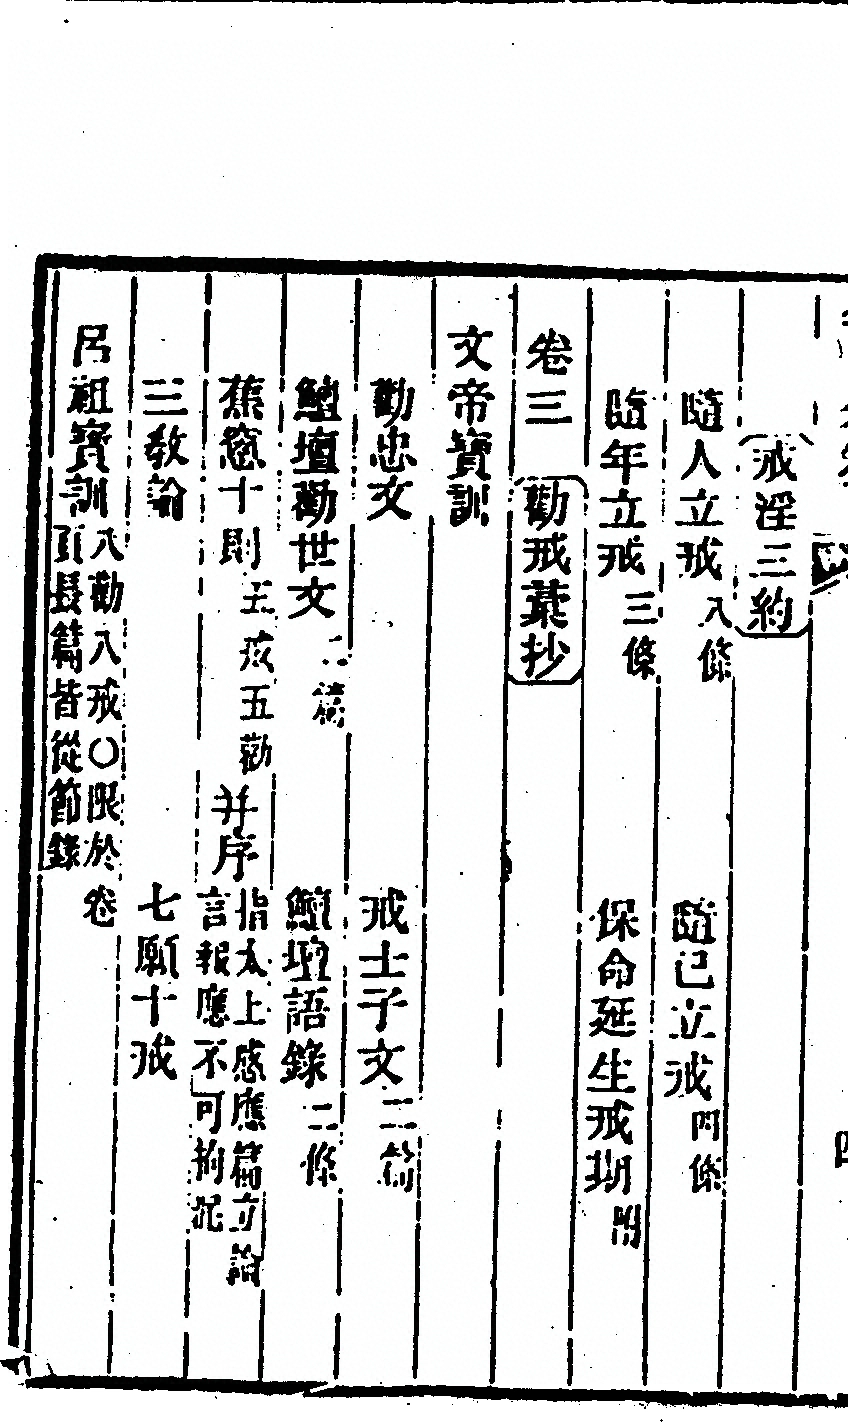 戒淫三約
隨人立戒 八條 隨已立戒 四條
臨年立戒 三條 保命延生戒期 附
卷三 勸戒彚抄
文帝寶訓
勸忠文 戒士子文 二篇
鱣壇勸世文 二篇 鱣壇語錄 二條
蕉窓十則 五戒五勸 并序 指太上感應篇立論言報應不可拘泥
三教論 七願十戒
呂祖寶訓 八勸八戒〇限於卷頁長篇皆從節錄